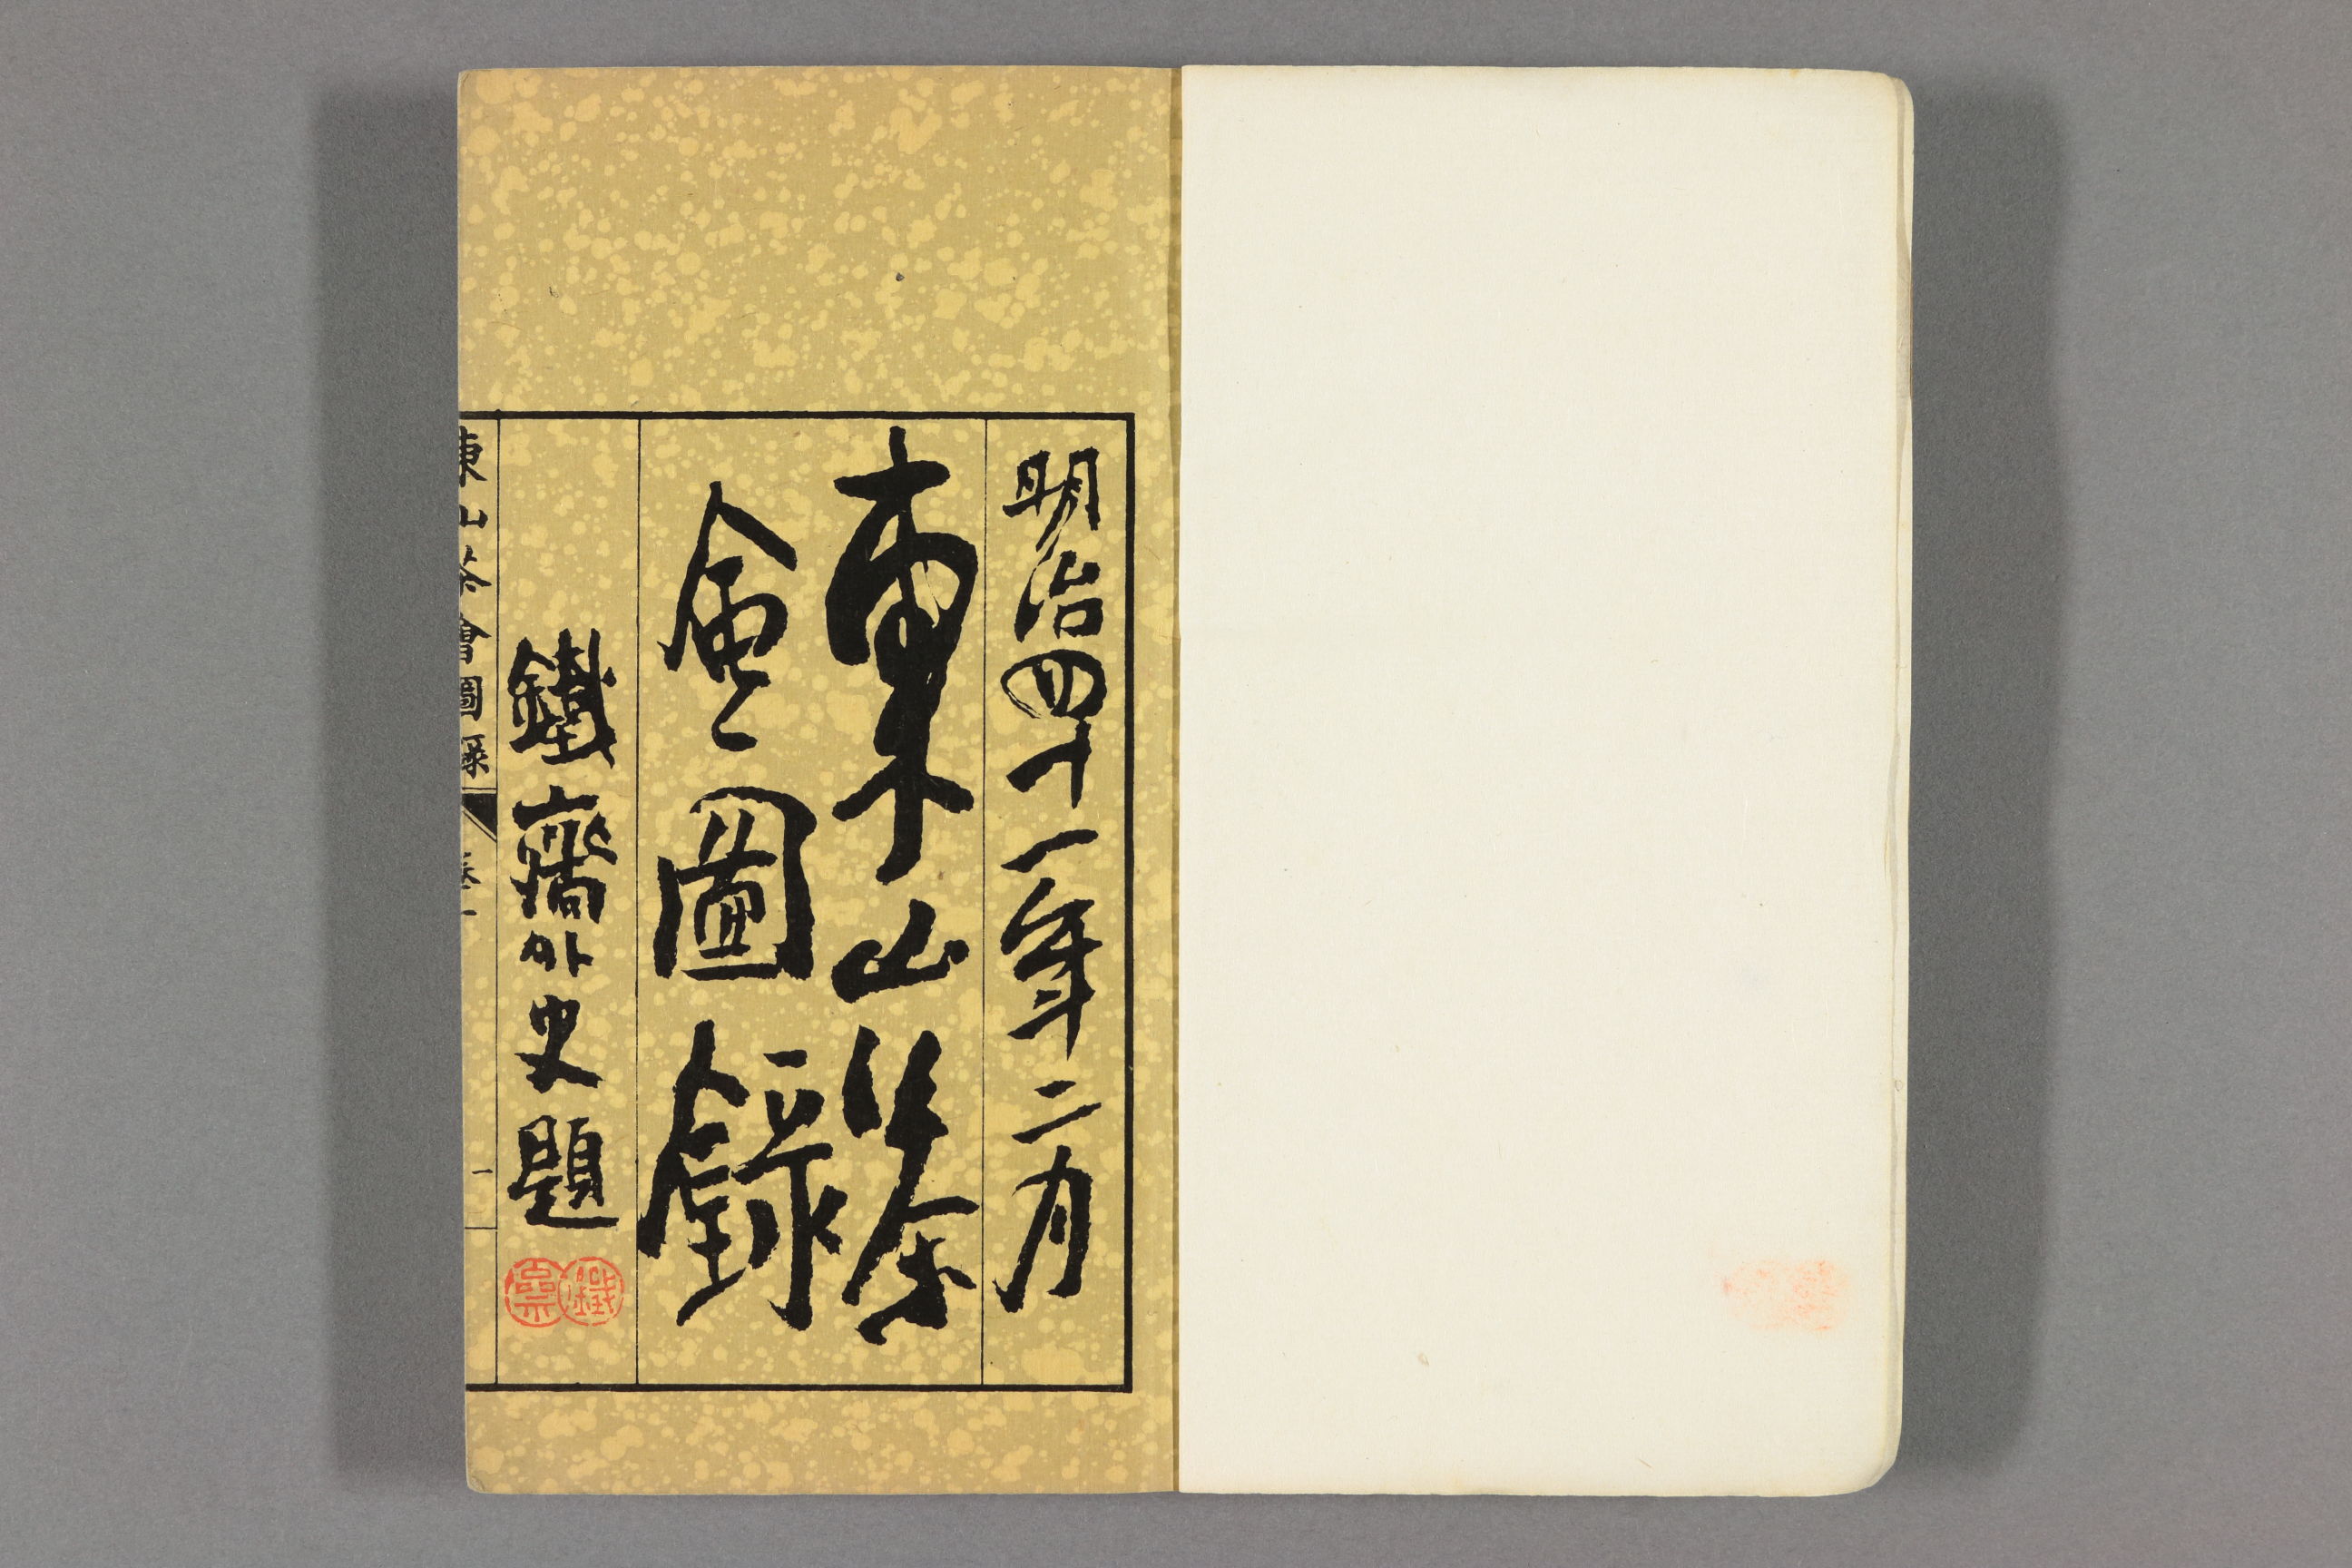 明治四十一年二月
東山茶
會圖錄
鐵齋外史題
鐵
齋
東山茶會圖録
卷一
一